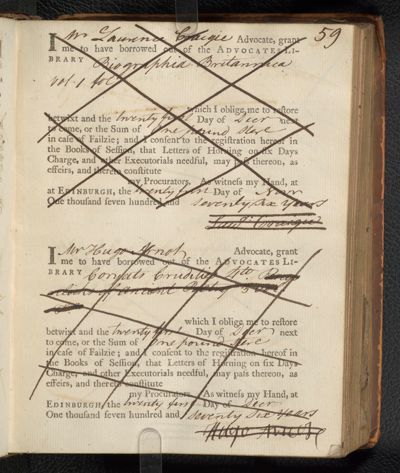 59
I Mr Laurence Craigie Advocate, grant
me to have borrowed out of the ADVOCATES LI-
BRARY Biographia Britannica
vol. 1 fol
which I oblige me to reſtore
betwixt and the twenty first Day of Decr next
to come, or the Sum of One pound Sterl
in caſe of Failzie; and I conſent to the regiſtration hereof in
the Books of Seſſion, that Letters of Horning on ſix Days
Charge, and other Executorials needful, may paſs thereon, as
effeirs, and thereto conſtitute
my Procurators. As witneſs my Hand, at
at EDINBURGH, the twenty first Day of Novr
One thouſand ſeven hundred and seventy six Years
Laur Craigie
I Mr Hugo Arnot Advocate, grant
me to have borrowed out of the ADVOCATES LI-
BRARY Coryats Crudities 4to
which I oblige me to reſtore
betwixt and the twenty first Day of Decr next
to come, or the Sum of One pound Sterl
in caſe of Failzie; and I conſent to the regiſtration hereof in
the Books of Seſſion, that Letters of Horning on ſix Days
Charge, and other Executorials needful, may paſs thereon, as
effeirs, and thereto conſtitute
my Procurators. As witneſs my Hand, at
EDINBURGH, the twenty first Day of
One thouſand ſeven hundred and seventy six Years
Hugo Arnot